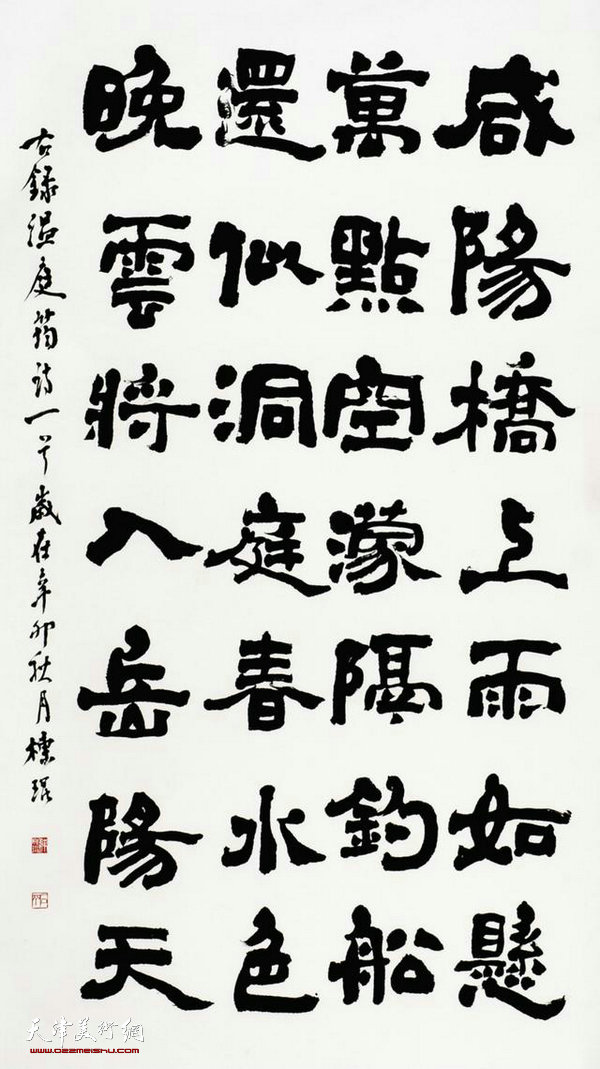 咸陽橋上雨如懸
萬點空濛隔釣船
還似洞庭春水色
晚雲將入岳陽天
右錄溫庭筠詩一首歲在辛卯秋月標琨
天津美術網
www.022meishu.com